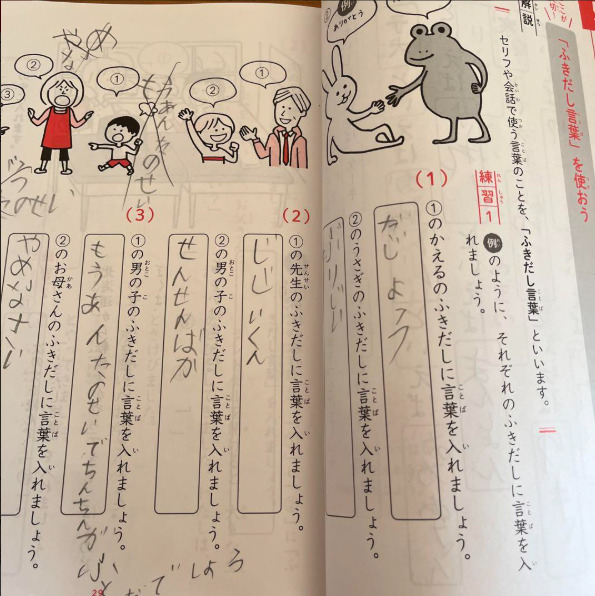 ここが
大切!
「ふきだし言葉」を使おう
解説
セリフや会話で使う言葉のことを、「ふきだし言葉」といいます。
練習1
例のように、それぞれのふきだしに言葉を入
れましょう。
例
ありがとう
②
(1)
①のかえるのふきだしに言葉を入れましょう。
②のうさぎのふきだしに言葉を入れましょう。
①
②
(2)
①の先生のふきだしに言葉を入れましょう。
②の男の子のふきだしに言葉を入れましょう。
せんせんばか
①
②
③
もうあんたのせい
(3)
①の男の子のふきだしに言葉を入れましょう。
もうあんたのせいでちんちんが
でしょう
②のお母さんのふきだしに言葉を入れましょう。
やめなさい
29